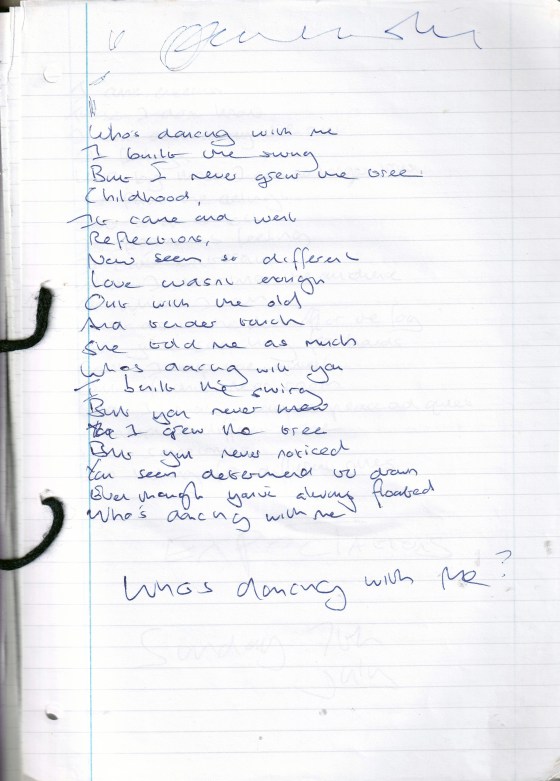 Who's dancing with me
I built the swing
But I never grew the tree
Childhood,
It came and went
Reflections,
Now seem so different
Love wasn't enough
Out with the old
And tender touch
She told me as much
Who's dancing with you
I built the swing
But you never knew
I grew the tree
But you never noticed
You seem determined to drown
Even though you've always floated
Who's dancing with me
Who's dancing with me?